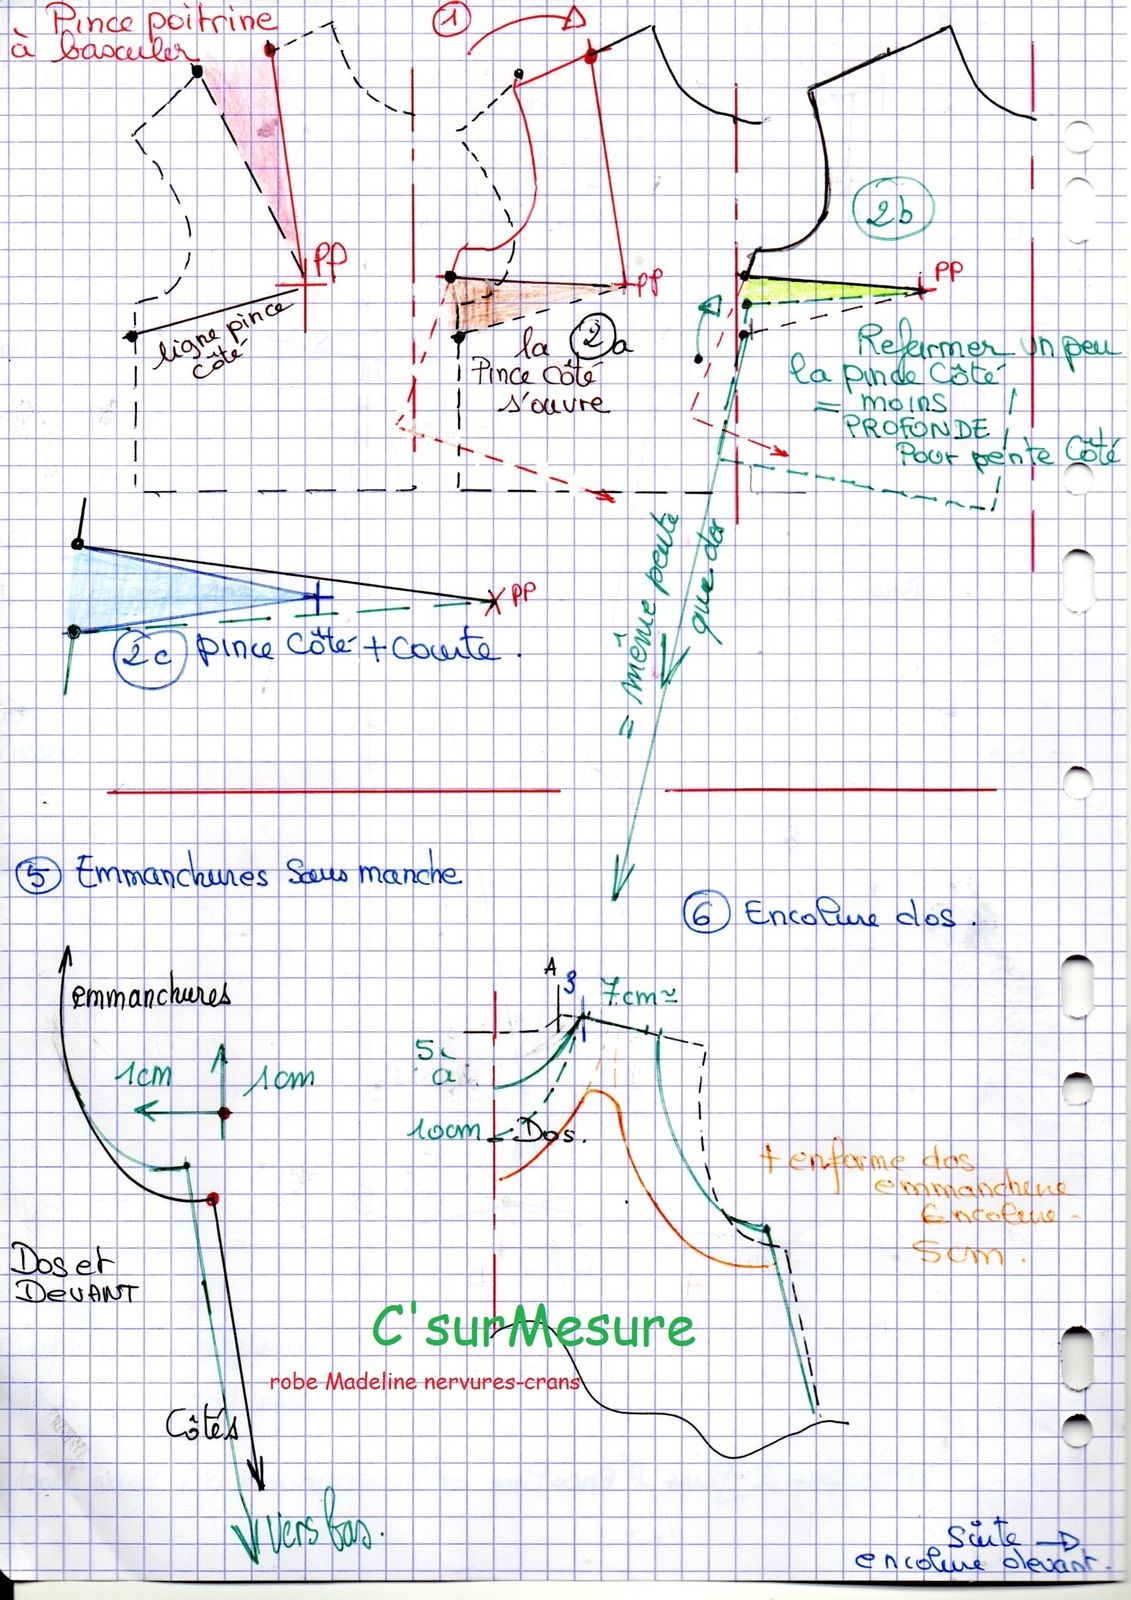 Pince poitrine
à basculer
1
PP
ligne pince
côté
PP
la 2a
Pince Côté
s'ouvre
2b
PP
Refermer un peu
la pince Côté
= moins
PROFONDE
Pour pente Côté
= même pente
que dos
PP
2c pince Côté + Courte.
5 Emmanchures Sans manche
6 Encolure dos.
emmanchures
1cm
1cm
Dos et
DEVANT
Côtés
Vers bas.
A
3
7cm≃
5
à
10cm
Dos.
+ enforme dos
emmanchure
Encolure
5cm.
C'surMesure
robe Madeline nervures-crans
Suite →
encolure devant.